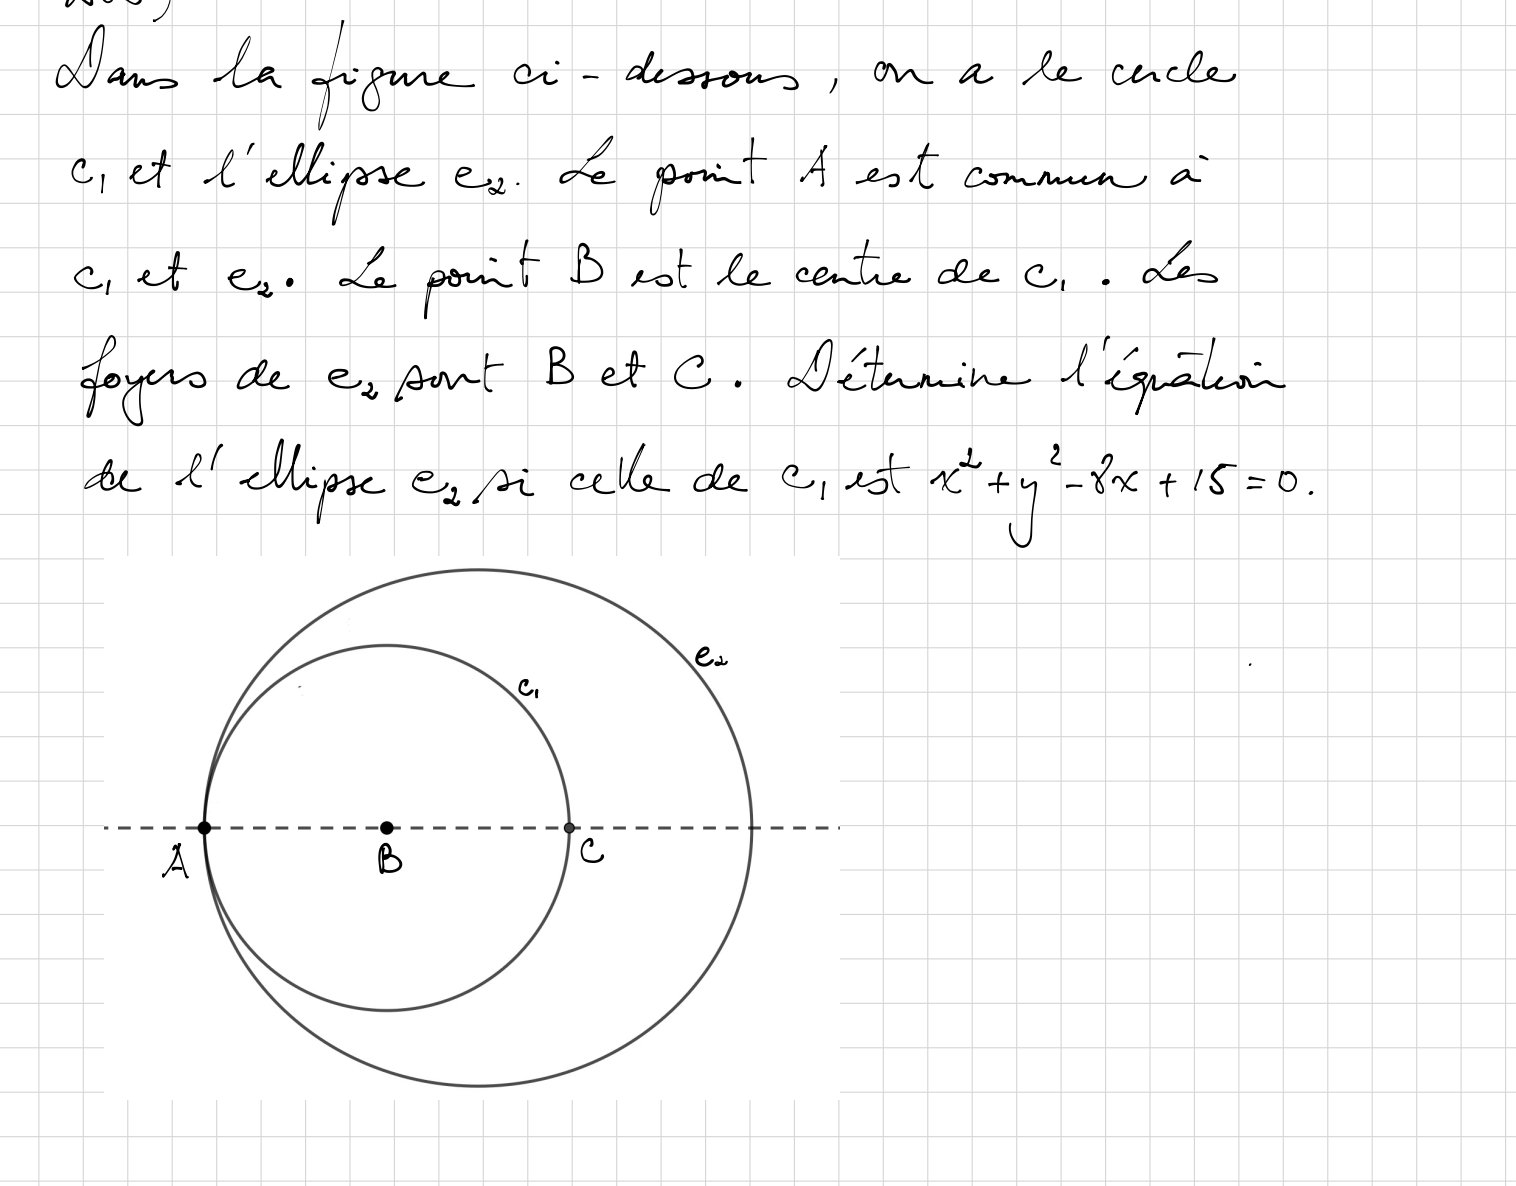 Dans la figure ci-dessous, on a le cercle
c₁ et l'ellipse e₂. Le point A est commun à
c₁ et e₂. Le point B est le centre de c₁. Les
foyers de e₂ sont B et C. Détermine l'équation
de l'ellipse e₂ si celle de c₁ est x²+y²-8x+15=0.
e₂
c₁
A
B
C